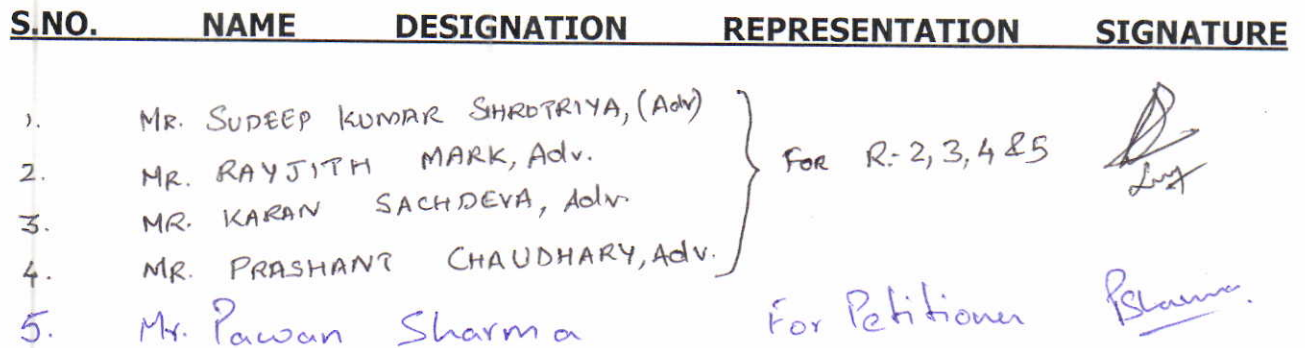 S.NO. NAME DESIGNATION REPRESENTATION SIGNATURE
1. MR. SUDEEP KUMAR SHROTRIYA, (Adv)
2. MR. RAYJITH MARK, Adv. FOR R:- 2, 3, 4 & 5
3. MR. KARAN SACHDEVA, Adv.
4. MR. PRASHANT CHAUDHARY, Adv.
5. Mr. Pawan Sharma For Petitioner PSharma